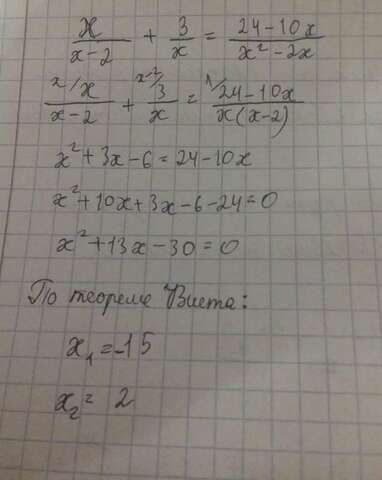 x/(x-2) + 3/x = (24-10x)/(x²-2x)
x/x/(x-2) + x-2/3/x = 1/24-10x/(x(x-2))
x²+3x-6=24-10x
x²+10x+3x-6-24=0
x²+13x-30=0
По теореме Виета:
x₁=-15
x₂= 2